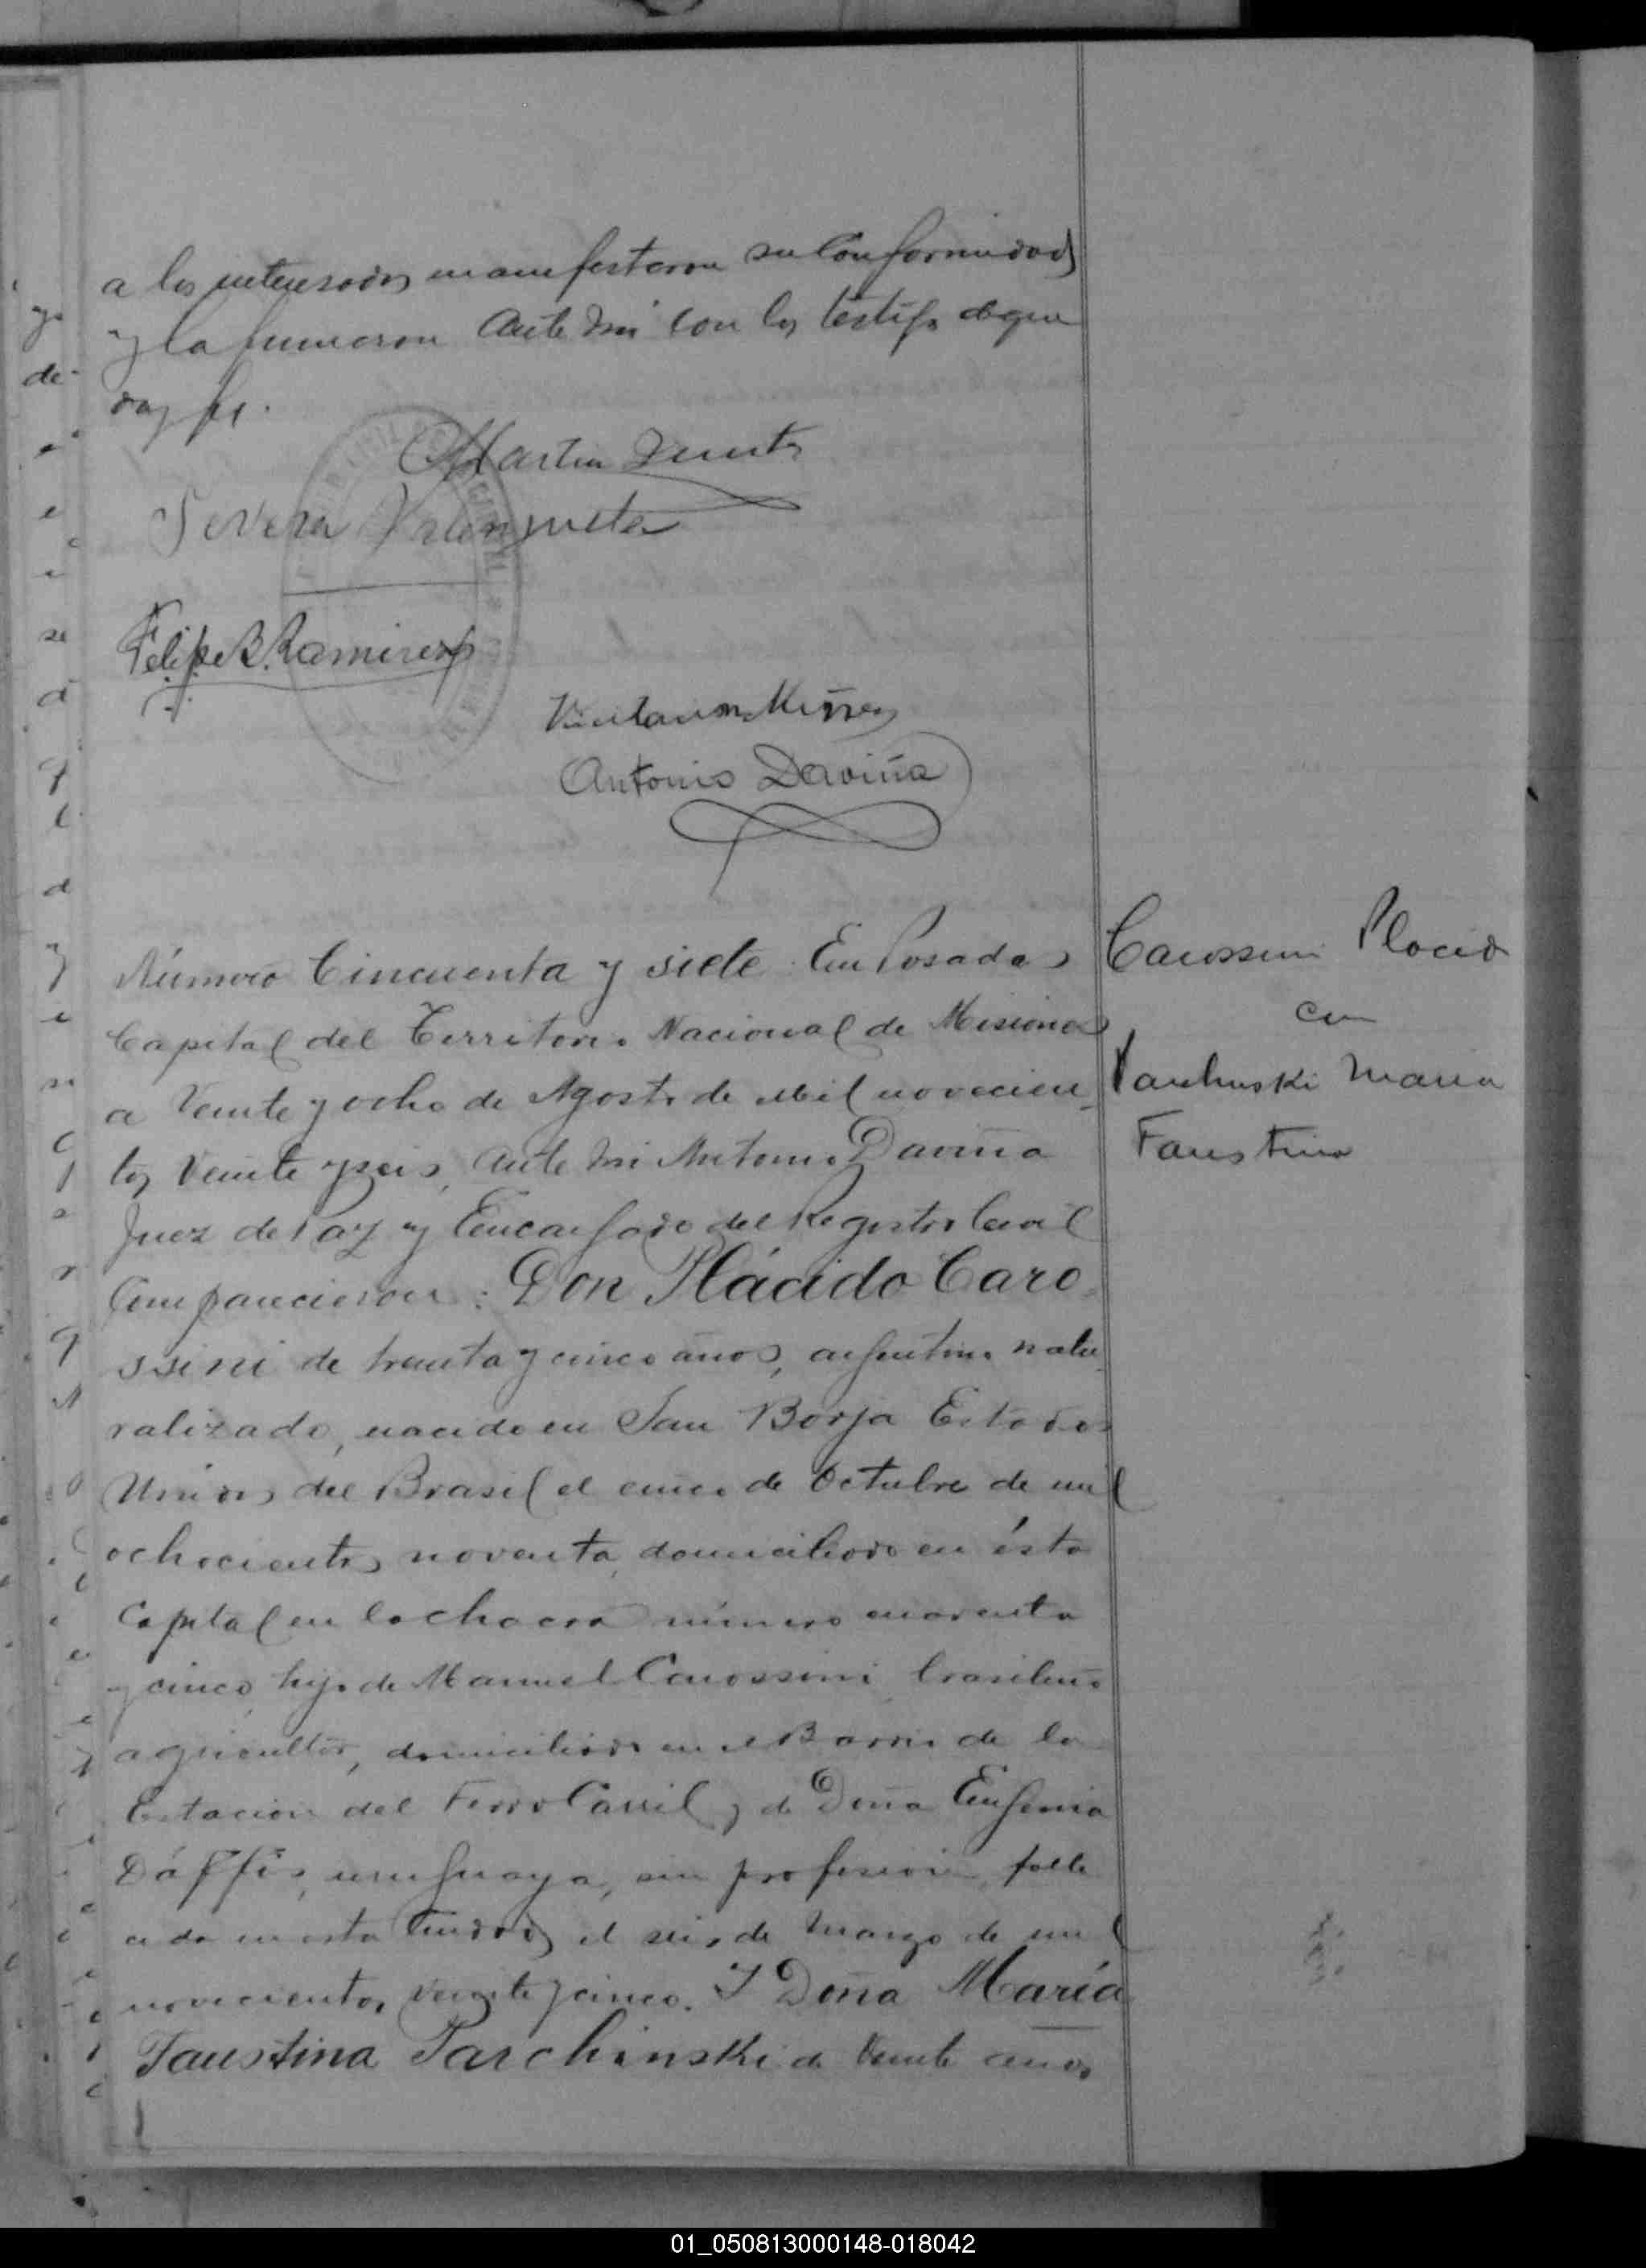 a los interesados manifestaron su Conformidad
y la firmaron Ante mi con los testigos de que
doy fé.
Martin
Severa Valenzuela
Felipe B. Ramirez
Antonio Daviña
Número Cincuenta y siete. En Posadas
Capital del Territorio Nacional de Misiones
a Veinte y ocho de Agosto de Mil novecien_
tos Veinte y seis, Ante mi Antonio Daviña
Juez de Paz y Encargado del Registro Civil
Comparecieron: Don Plácido Caro_
ssini de treinta y cinco años, argentino natu_
ralizado, nacido en San Borja Estados
Unidos del Brasil el cinco de Octubre de mil
ochocientos noventa, domiciliado en ésta
Capital en la chacra número cuarenta
y cinco, hijo de Manuel Carossini, brasileño
agricultor, domiciliado en el Barrio de la
Estacion del Ferro Carril y de Doña Eufemia
Dáffis, uruguaya, sin profesion, falle
cida en esta Ciudad el seis de Marzo de mil
novecientos veinte y cinco. Y Doña María
Faustina Parchinski de Veinte años
Carossini Placido
con
Parchinski Maria
Faustina
01_050813000148-018042